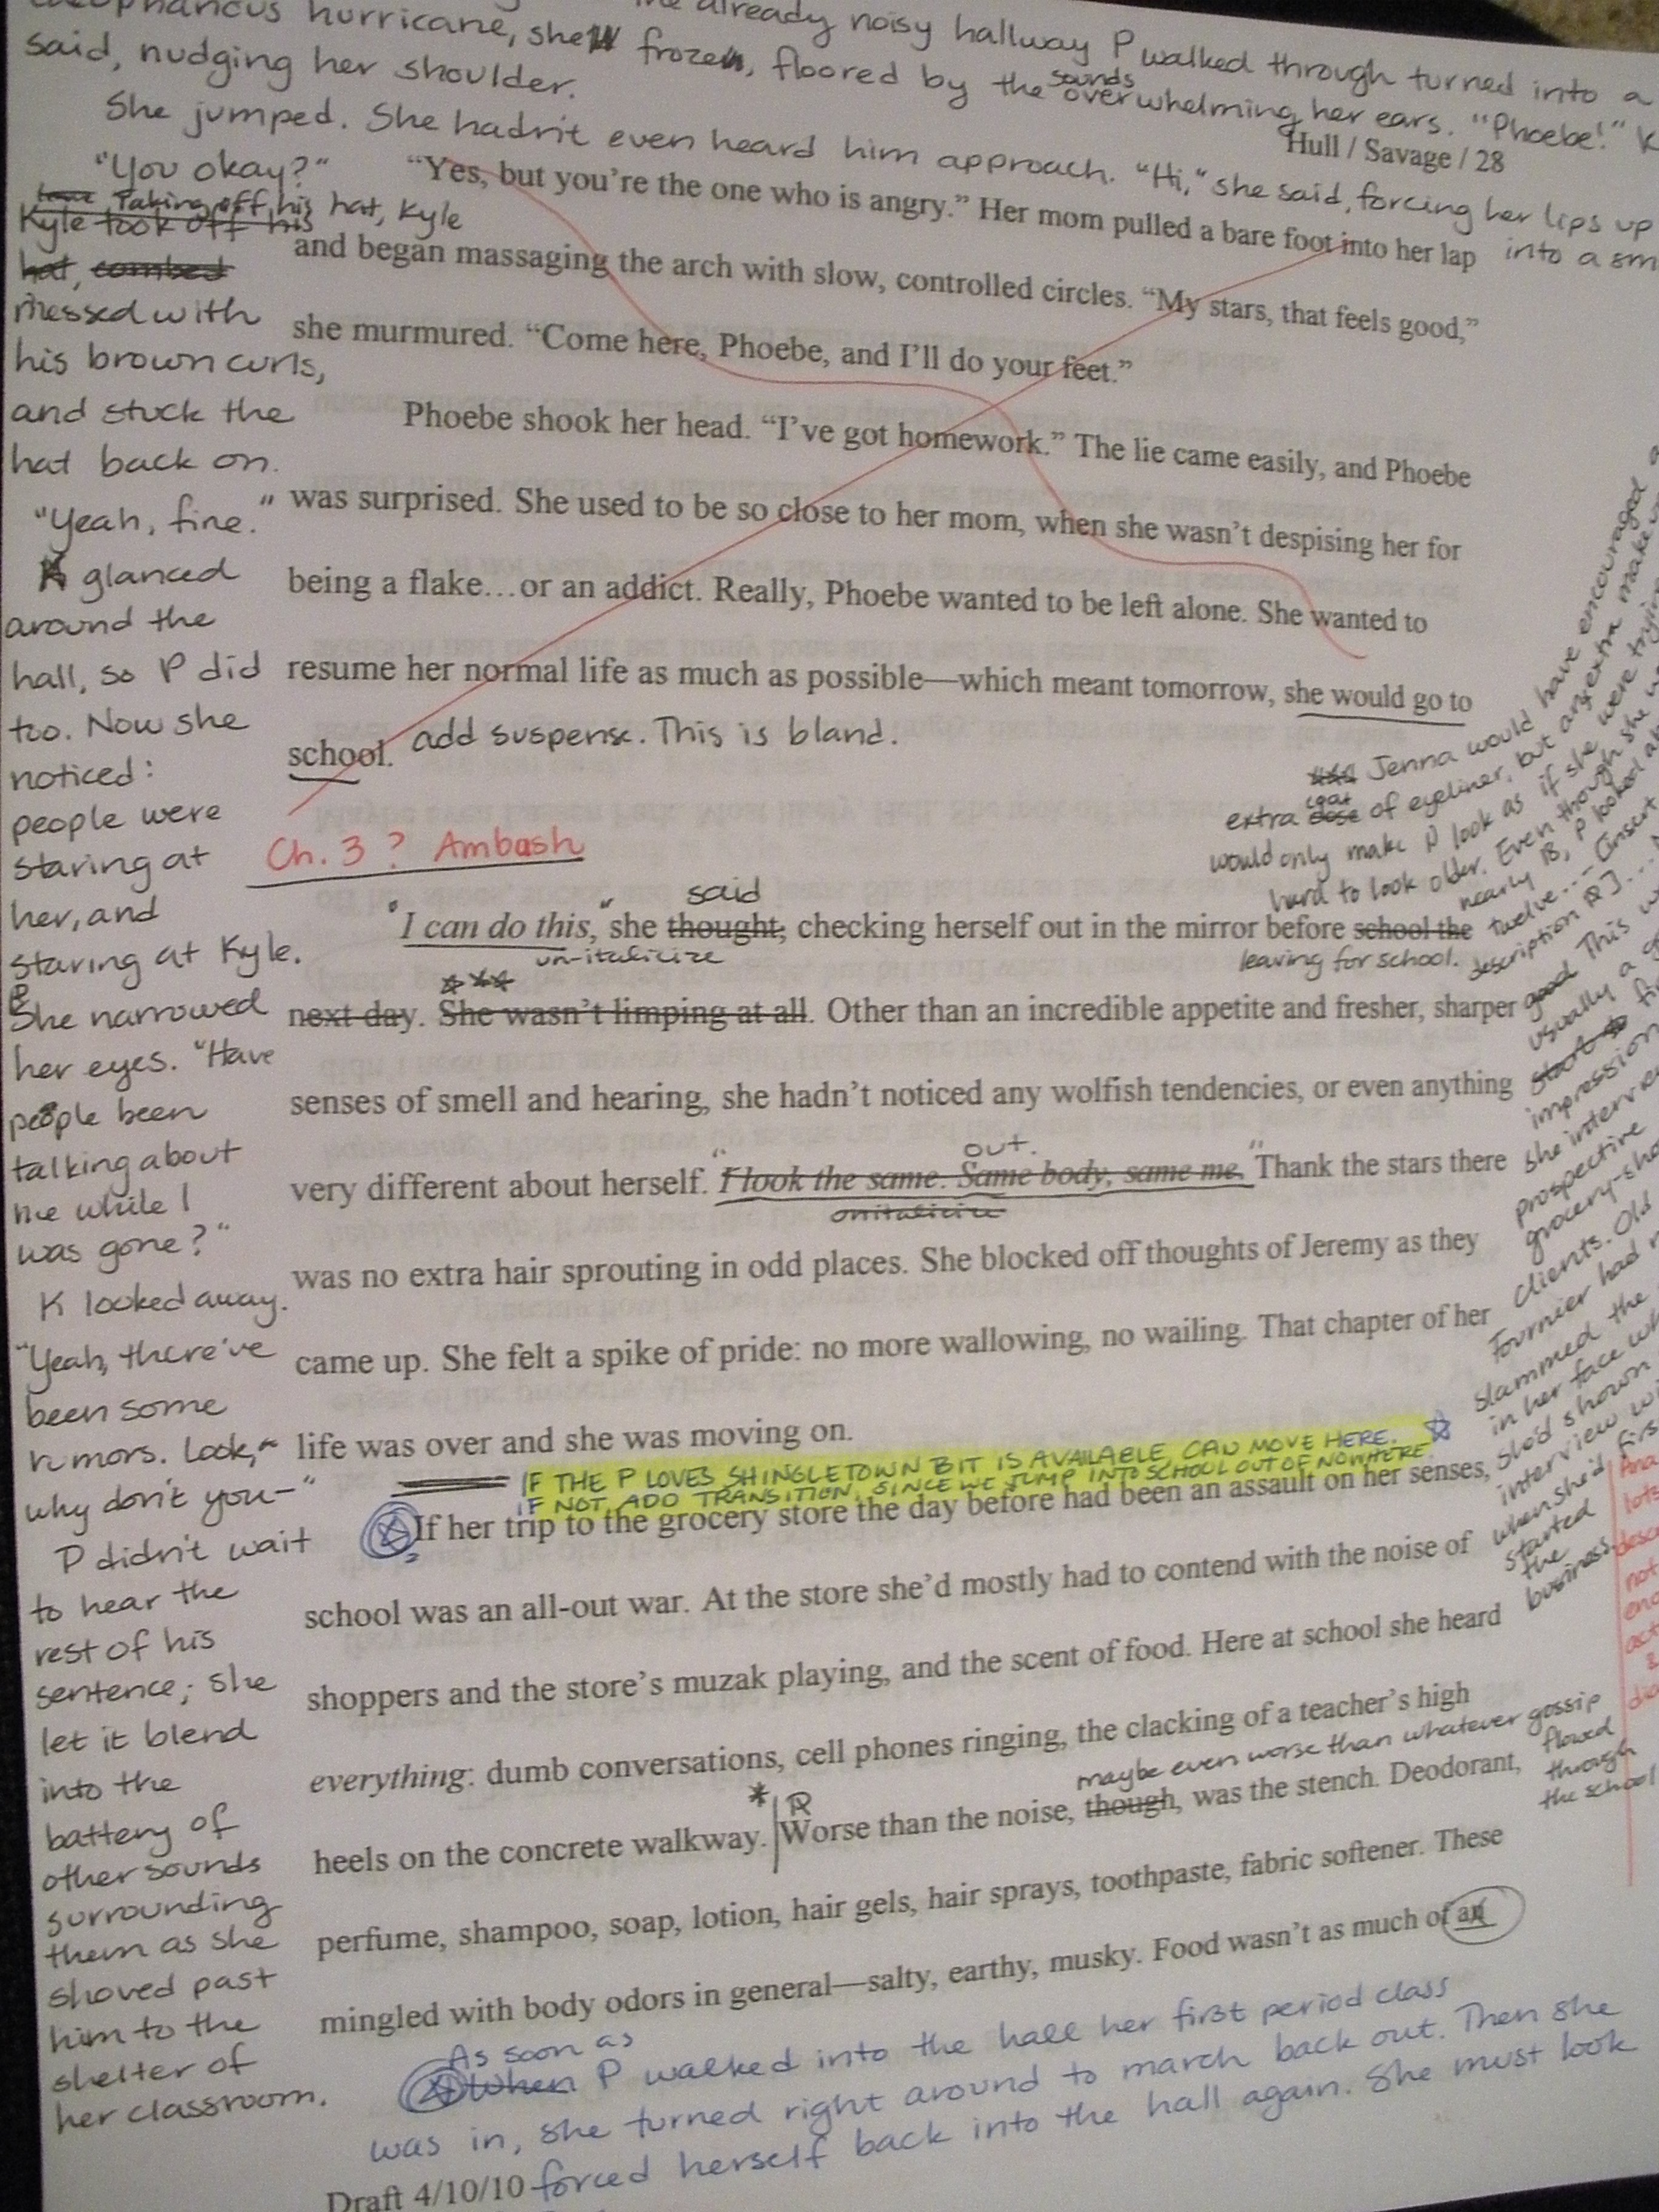 already noisy hallway P walked through turned into a
hurricane, she frozen, floored by the sounds overwhelming her ears. "Phoebe!" K
said, nudging her shoulder.
She jumped. She hadn't even heard him approach. "Hi," she said, forcing her lips up
into a sm
Hull / Savage / 28
"You okay?"
Taking off his hat, Kyle
Kyle took off his
hat, combed
messed with
his brown curls,
and stuck the
hat back on.
"Yeah, fine."
K glanced
around the
hall, so P did
too. Now she
noticed:
people were
staring at
her, and
staring at Kyle.
She narrowed
her eyes. "Have
people been
talking about
me while I
was gone?"
K looked away.
"Yeah, there've
been some
rumors. Look,
why don't you—"
P didn't wait
to hear the
rest of his
sentence; she
let it blend
into the
battery of
other sounds
surrounding
them as she
shoved past
him to the
shelter of
her classroom.
"Yes, but you're the one who is angry." Her mom pulled a bare foot into her lap
and began massaging the arch with slow, controlled circles. "My stars, that feels good,"
she murmured. "Come here, Phoebe, and I'll do your feet."
Phoebe shook her head. "I've got homework." The lie came easily, and Phoebe
was surprised. She used to be so close to her mom, when she wasn't despising her for
being a flake…or an addict. Really, Phoebe wanted to be left alone. She wanted to
resume her normal life as much as possible—which meant tomorrow, she would go to
school. add suspense. This is bland.
Ch. 3? Ambush
said
"I can do this," she thought, checking herself out in the mirror before school the
un-italicize
leaving for school.
next day. She wasn't limping at all. Other than an incredible appetite and fresher, sharper
senses of smell and hearing, she hadn't noticed any wolfish tendencies, or even anything
out.
very different about herself. "I look the same. Same body, same me." Thank the stars there
unitalicize
was no extra hair sprouting in odd places. She blocked off thoughts of Jeremy as they
came up. She felt a spike of pride: no more wallowing, no wailing. That chapter of her
life was over and she was moving on.
IF THE P LOVES SHINGLETOWN BIT IS AVAILABLE CAN MOVE HERE.
IF NOT, ADD TRANSITION, SINCE WE JUMP INTO SCHOOL OUT OF NOWHERE
If her trip to the grocery store the day before had been an assault on her senses,
school was an all-out war. At the store she'd mostly had to contend with the noise of
shoppers and the store's muzak playing, and the scent of food. Here at school she heard
everything: dumb conversations, cell phones ringing, the clacking of a teacher's high
maybe even worse than whatever gossip
flowed
through
the school
heels on the concrete walkway. Worse than the noise, though, was the stench. Deodorant,
perfume, shampoo, soap, lotion, hair gels, hair sprays, toothpaste, fabric softener. These
mingled with body odors in general—salty, earthy, musky. Food wasn't as much of an
As soon as
When P walked into the hall her first period class
was in, she turned right around to march back out. Then she
forced herself back into the hall again. She must look
Draft 4/10/10
Jenna would have encouraged
coat
extra dose of eyeliner, but an extra make
would only make P look as if she were trying
hard to look older. Even though she
nearly 18, P looked
twelve... (insert
description
good This
usually a
start
impression
she interview
prospective
grocery-sho
clients. Old
Fournier had
slammed the
in her face wh
she'd shown
interview wi
when she'd firs
started
the
business.
lots
desc
not